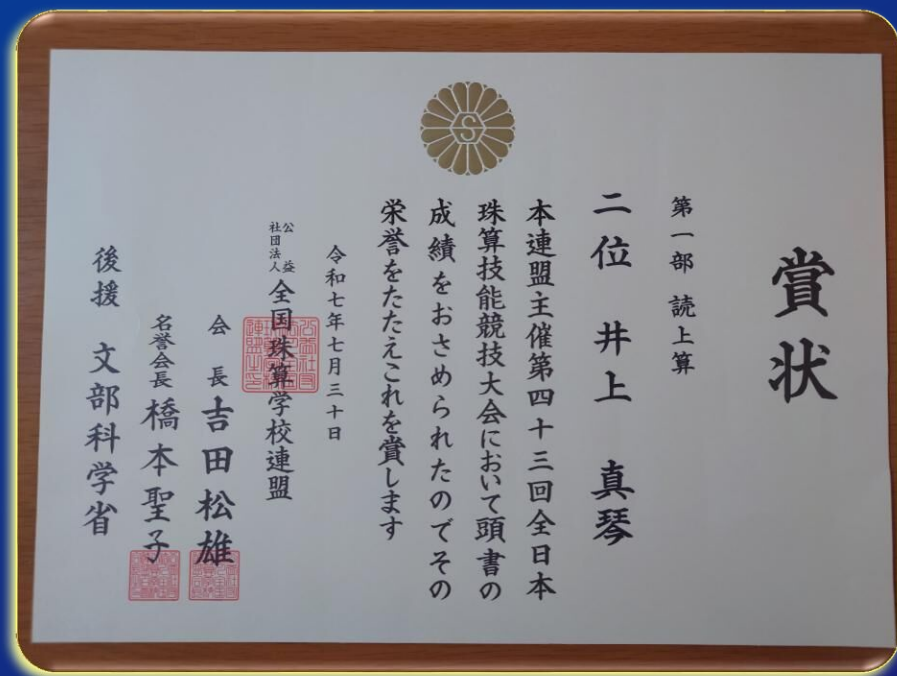 賞状
第一部 読上算
二位 井上 真琴
本連盟主催第四十三回全日本
珠算技能競技大会において頭書の
成績をおさめられたのでその
栄誉をたたえこれを賞します
令和七年七月三十日
公益社団法人 全国珠算学校連盟
会長 吉田松雄
名誉会長 橋本聖子
後援 文部科学省
S